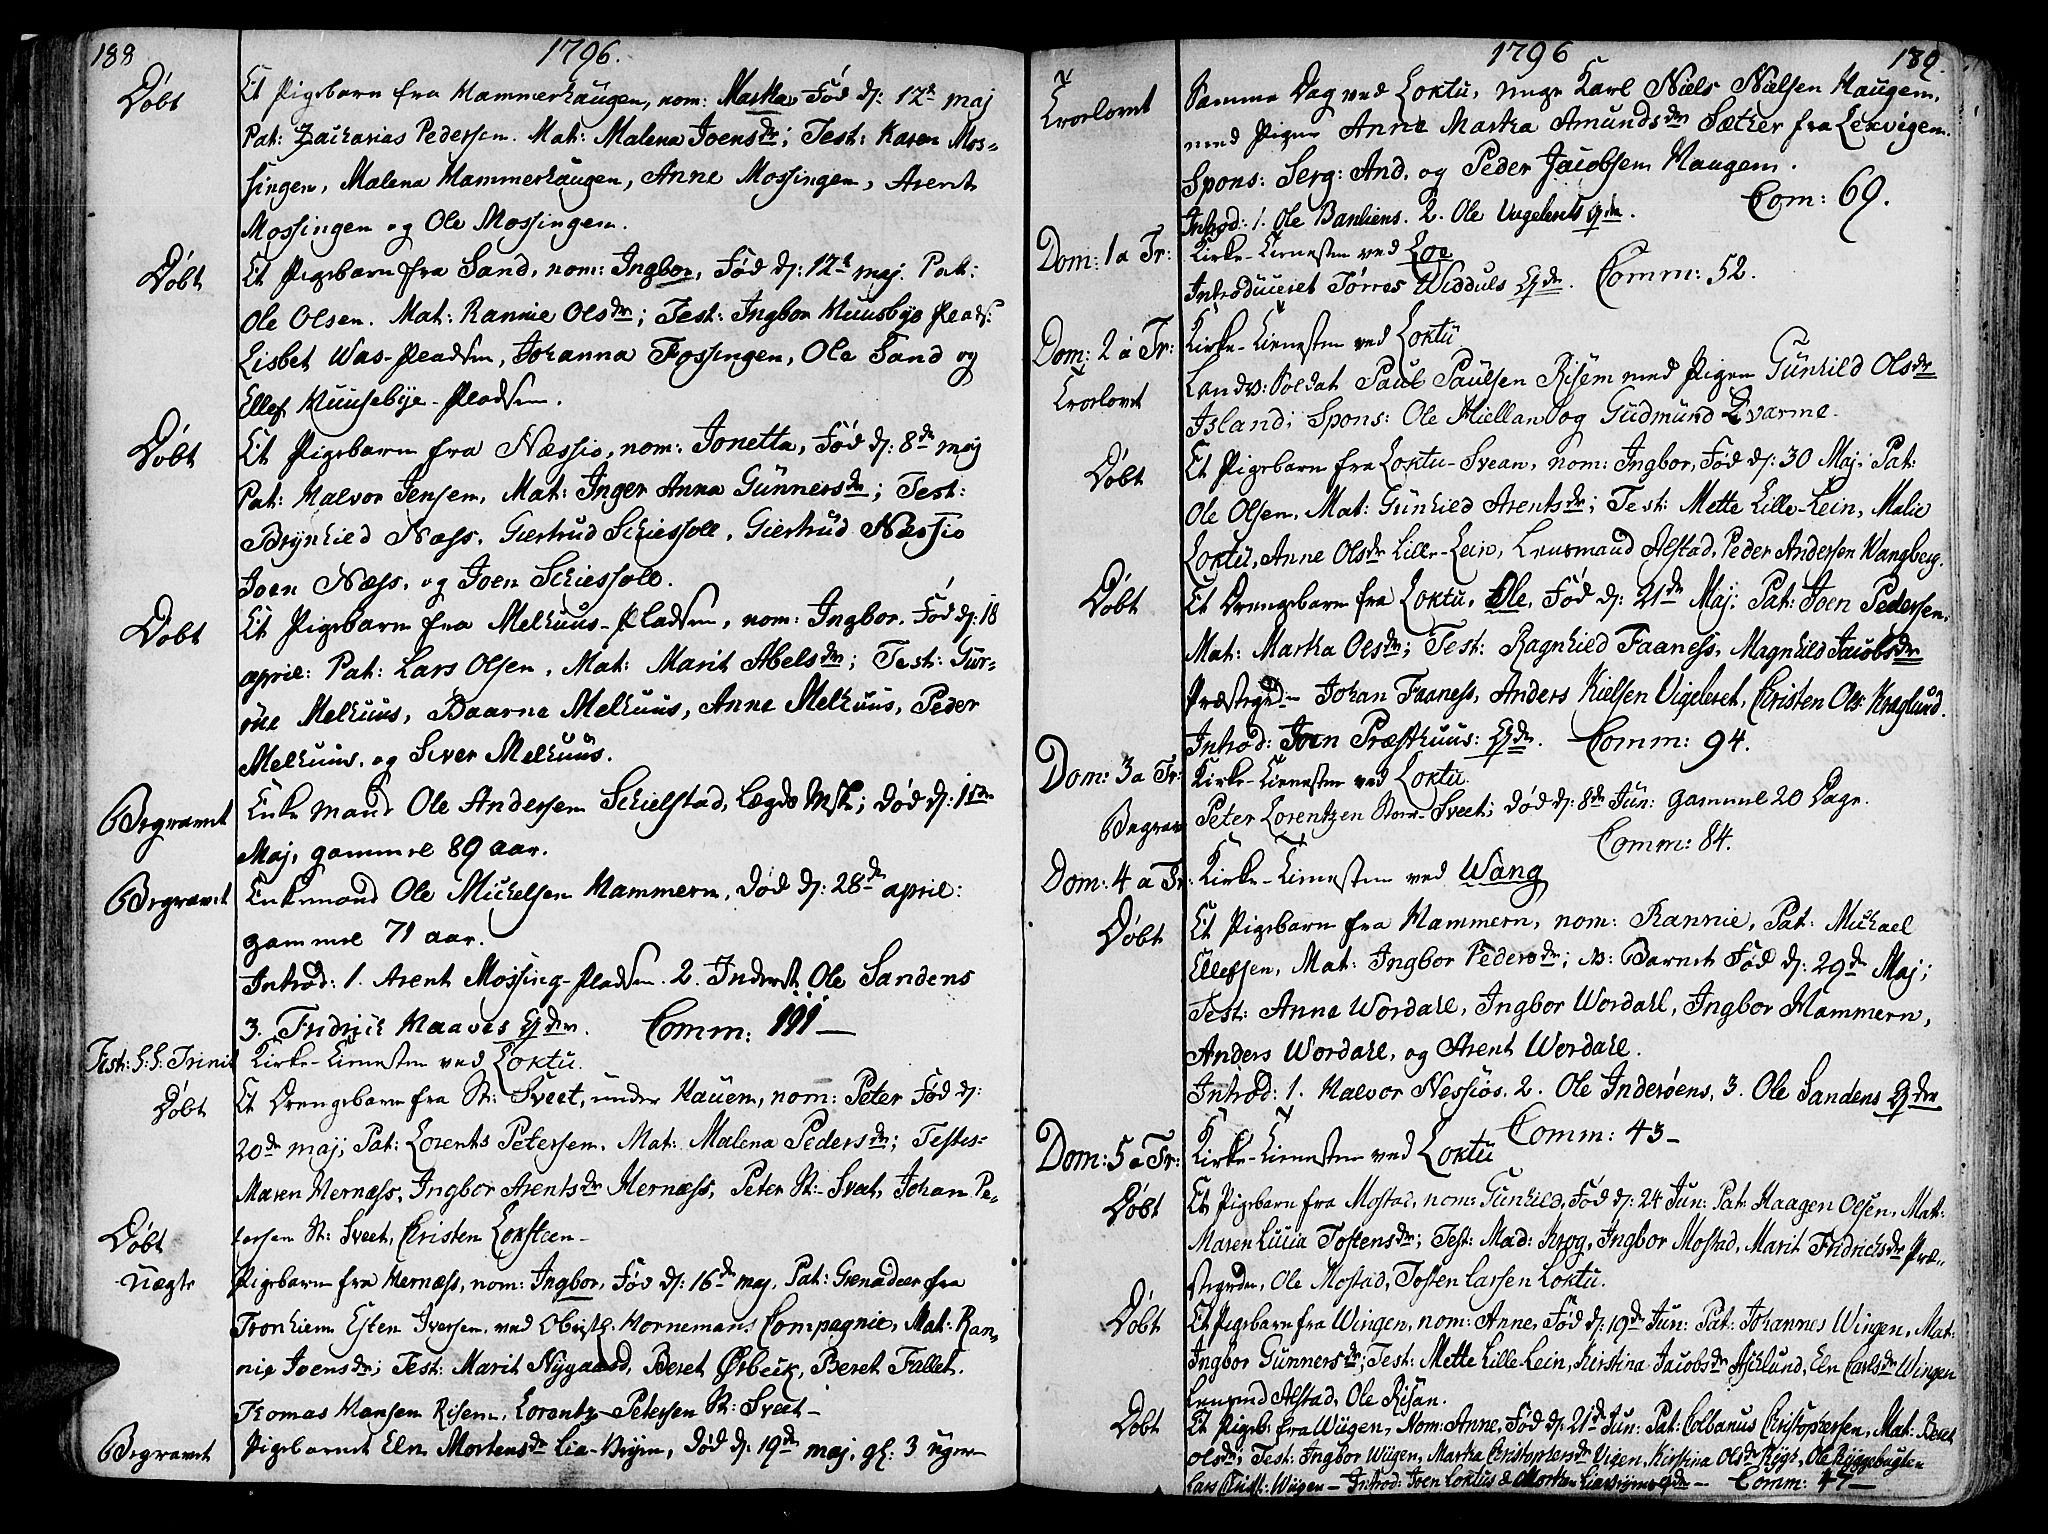 188
1796.
Døbt
Et Pigebarn fra Hammerhaugen, nom: Martha Fød d: 12te maj
Pat: Zacharias Pedersen. Mat: Malena Joensdr; Test: Karen Mos-
singen, Malena Hammerhaugen, Anne Mossingen, Arent
Mossingen og Ole Mossingen.
Døbt
Et Pigebarn fra Sand, nom: Ingbor, Fød d: 12te maj. Pat:
Ole Olsen. Mat: Rannie Olsdr; Test: Ingbor Huusbye Plads:
Lisbet Was-Pladsen, Johanna Fossingen, Ole Sand og
Ellef Huusebye-Pladsen.
Døbt
Et Pigebarn fra Næssio, nom: Jonetta, Fød d: 8de maj
Pat: Halvor Jensen, Mat: Inger Anna Gunnersdr; Test:
Brynhild Næss, Giertrud Schiessoll, Giertrud Næssio
Joen Næss, og Joen Schiessoll.
Døbt
Et Pigebarn fra Melhuus-Pladsen, nom: Ingbor, Fød d: 18
april: Pat: Lars Olsen, Mat: Marit Abelsdr; Test: Gur-
one Melhuus, Baarne Melhuus, Anne Melhuus, Peder
Melhuus, og Siver Melhuus.
Begravet
Enke mand Ole Andersen Schielstad, Lægds Msk; død d: 1ste
Maj, gammel 89 aar.
Begravet
Enkemand Ole Michelsen Hammern, død d: 28de april:
gammel 71 aar.
Introd: 1. Arent Mossing-Pladsen. 2. Inderst Ole Sandens
3. Fridrich Haaves Qder. Comm: 191 —
Fest: S.S: Trinit
Kirke-Tienesten ved Loktu.
Døbt
Et Drengebarn fra St: Sveet, under Hauen, nom: Peter Fød d:
20de maj; Pat: Lorents Petersen, Mat: Malena Pedersdr; Testes:
Maren Hernæss, Ingbor Arentsdr Hernæss, Peter St:-Sveet, Johan Pe-
tersen St: Sveet, Christen Lohsteen-
Døbt
uægte
Pigebarn fra Hernæss, nom: Ingbor, Fød d: 16de maj, Pat: Grenadeer fra
Tronhiem Esten Iversen, ved Obristl: Hornemans Compagnie, Mat: Ran-
nie Joensdr; Test: Marit Nygaard, Beret Ørbeck, Beret Fallet.
Thomas Hansen Risem, Lorentz Petersen St: Sveet-
Begravet
Pigebarnet Eln Mortensdr Lia-Bryn, død d: 19de maj, gl: 3 uger
1796
189.
Trorlovet
Samme Dag ved Loktu, unge Karl Niels Nielsen Haugem,
med Pigen Anne Martha Amundsdr Sæther fra Lexvigen.
Spons: Serg: And. og Peder Jacobsen Haugem.
Introd: 1. Ole Banliens. 2. Ole Vugelents Qdr. Com: 69.
Dom: 1 a Tr:
Kirke-Tienesten ved Loe
Introduceret Torres Widduls Qdr. Comm: 52.
Dom: 2 a Tr:
Kirke-Tienesten ved Loktu
Trorlovet
Landv: Soldat Paul Paulsen Risem med Pigen Gunhild Olsdr
Island; Spons: Ole Hielland og Gudmund Qvarme.
Døbt
Et Pigebarn fra Loktu-Svean, nom: Ingbor, Fød d: 30 Maj; Pat:
Ole Olsen, Mat: Gunhild Arentsdr; Test: Mette Lille-Lein, Malie
Loktu, Anne Olsdr Lille-Lein, Lensmand Alstad, Peder Andersen Wangberg.
Døbt
Et Drengebarn fra Loktu, Ole, Fød d: 21de Maj; Pat: Joen Pedersen,
Mat: Martha Olsdr; Test: Ragnhild Faaness, Magnhild Jacobsdr
Præstegrd- Johan Faaness, Anders Kielsen Vigeleret, Christen Ols: Kraglund.
Introd: Joen Præsthuus: Qdr. Comm: 94.
Dom: 3 a Tr:
Kirke-Tienesten ved Loktu.
Begrav
Peter Lorentzen Store-Sveet; død d: 8de Jun: gammel 20 Dage.
Comm: 84.
Dom: 4 a Tr:
Kirke-Tienesten ved Wang
Døbt
Et Pigebarn fra Hammern, nom: Rannie, Pat: Michael
Ellefsen, Mat: Ingbor Pedersdr; N: Barnet Fød d: 29de Maj;
Test: Anne Wordahl, Ingbor Wordahl, Ingbor Hammern,
Anders Wordahl, og Arent Wordahl.
Introd: 1. Halvor Nessiøs, 2. Ole Inderøens, 3. Ole Sandens Qder
Comm: 43-
Dom: 5 a Tr:
Kirke-Tienesten ved Loktu
Døbt
Et Pigebarn fra Mostad, nom: Gunhild, Fød d: 24 Jun: Pat: Haagen Olsen, Mat:
Maren Lucia Tostensdr; Test: Mad: Krog, Ingbor Mostad, Marit Fridrichsdr Præ-
stegrden, Ole Mostad, Tosten Larsen Loktu.
Døbt
Et Pigebarn fra Wingen, nom: Anne, Fød d: 19de Jun: Pat: Johannes Wingen, Mat:
Ingbor Gunnersdr; Test: Mette Lille Lein, Kirstina Jacobsdr Aschlund, Eln Carlsdr Wingen
Lensmd Alstad, Ole Risan.
Døbt
Et Pigeb: fra Wiigen, Nom: Anne, Fød d: 21de Jun: Pat: Colbanus Christophersen, Mat: Beret
Olsdr; Test: Ingbor Wiigen, Martha Christophersdr Vigen, Kirstina Olsdr Rygh, Ole Ryggebugte-
Lars Christ: Wiigen - Introd: Joen Loktus & Morten Liabryns Qdr - Comm: 47-